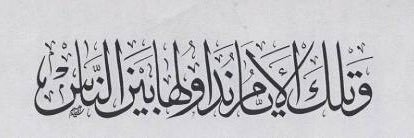 وَتِلْكَ الْأَيَّامُ نُدَاوِلُهَا بَيْنَ النَّاسِ